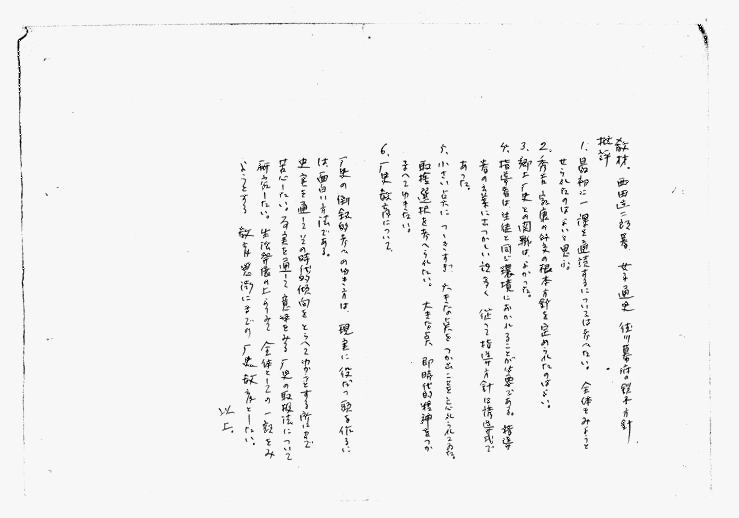 教材、西田直二郎著 女子通史 徳川幕府の鎖国方針
批評
1. 最初に一課を通読するについては考へたい。全体をみようと
せられたのはよいと思ふ。
2. 秀吉、家康の外交の根本方針を定められたのはよい。
3. 郷土史との関聯はよかった。
4. 指導者は生徒と同じ環境におかれることが必要である。指導
者の言葉にむつかしい語多く 従って指導方針は講義式で
あった。
5. 小さい点につきすぎ、大きな点をつかむことを忘れられてゐた。
取捨選択を考へられたい。大きな点 即時代的精神をつか
まへてゆきたい。
6. 歴史教育について
歴史の倒叙的考へのゆき方は、現実に役だつ頭を作るに
は、面白い方法である。
史実を通してその時代的傾向をとらへてゆかうとする所にまで
苦心したい。史実を通して意味をみる歴史の取扱法について
研究したい。生活発展の上からみて全体としての一語をみ
ようとする 教育思潮にまでの歴史教育としたい。
以上。